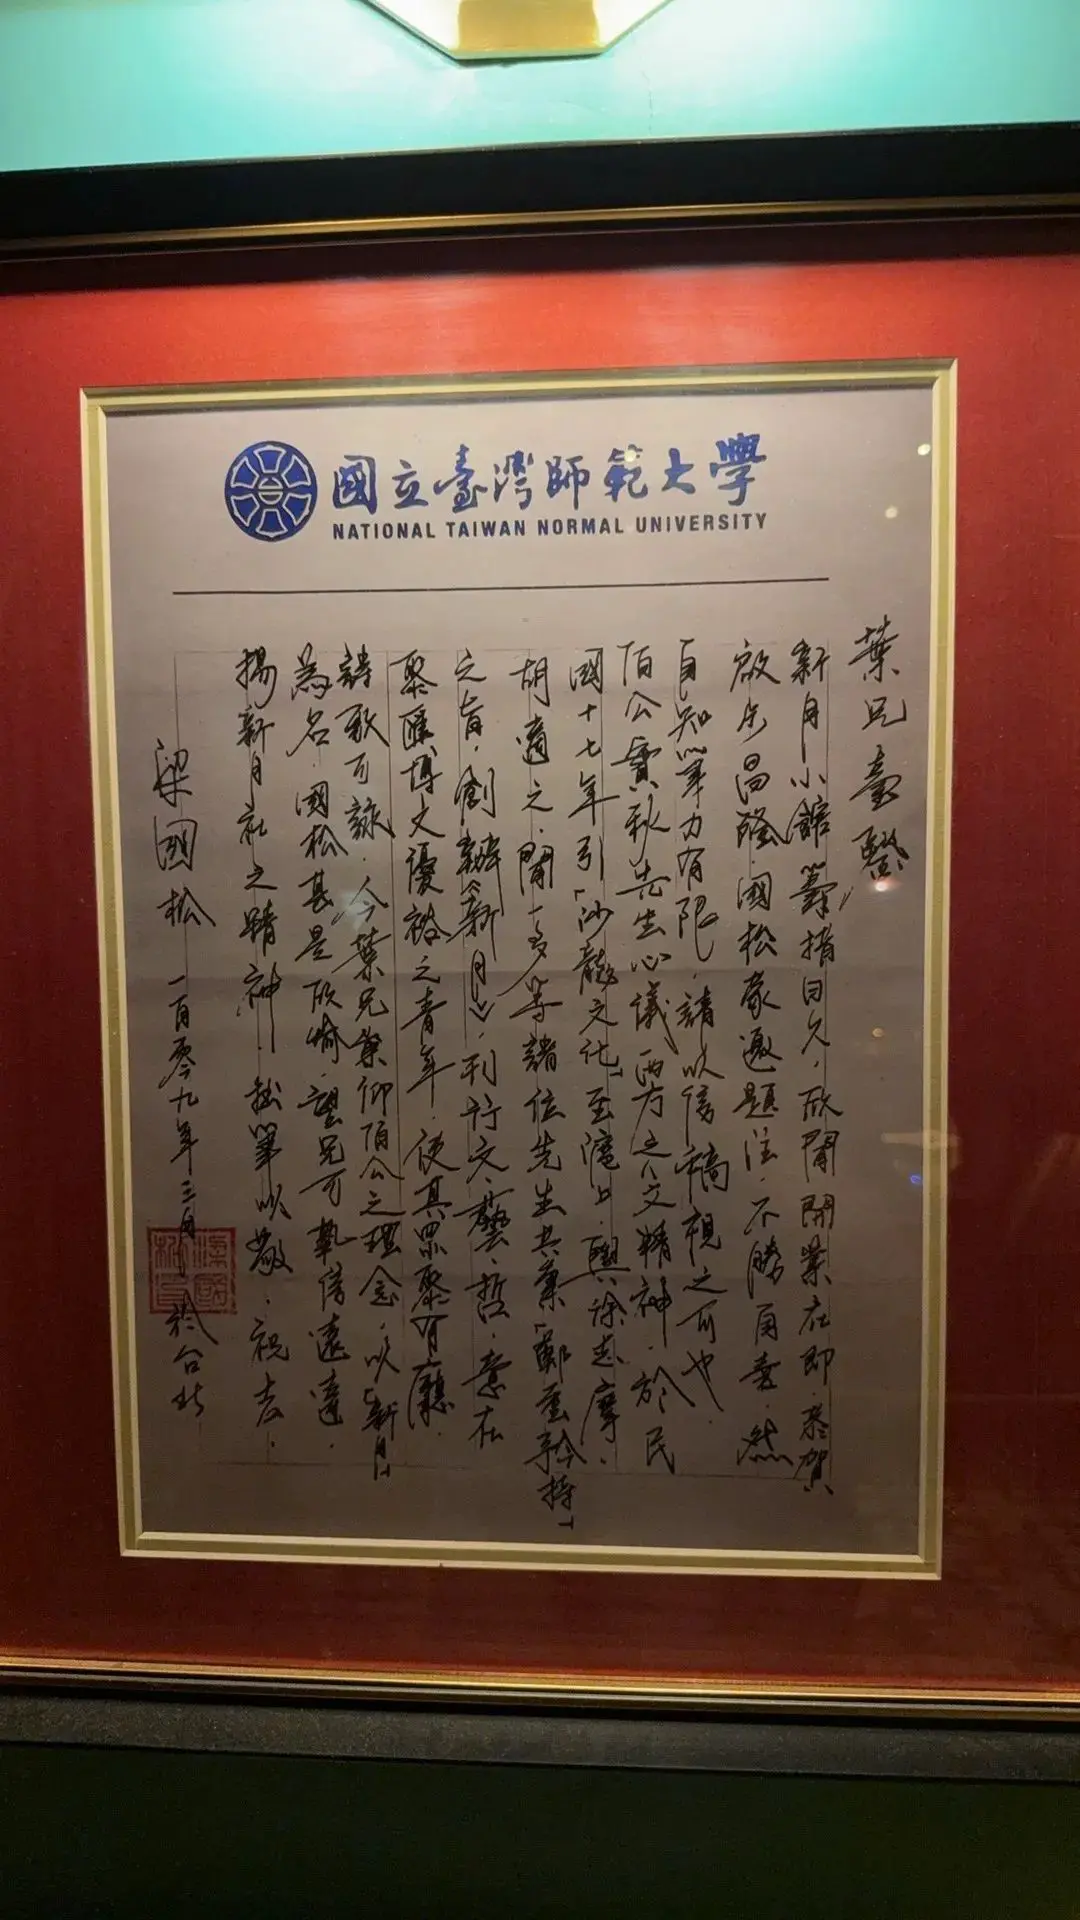 國立臺灣師範大學
NATIONAL TAIWAN NORMAL UNIVERSITY
葉兄臺鑒
新月小館籌措日久，欣聞開業在即，恭賀
啟步昌隆，國松承邀題注，不勝自喜，然
自知筆力有限，請以信稿視之可也。
伯公實秋先生心議西方之人文精神，於民
國十七年引「沙龍文化」至滬上，與徐志摩、
胡適之、聞一多等諸位先生共策「鄭重矜持」
之旨，創辦《新月》，刊行文、藝、哲，意在
聚匯博文優被之青年，使其眾聚有廳，
詩歌可詠，今葉兄策仰伯公之理念，以「新月」
為名，國松甚是欣愉，望兄可執信遠達，
揚新月社之精神，拙筆以敬，祝去。
梁國松 一百零九年三月 於台北